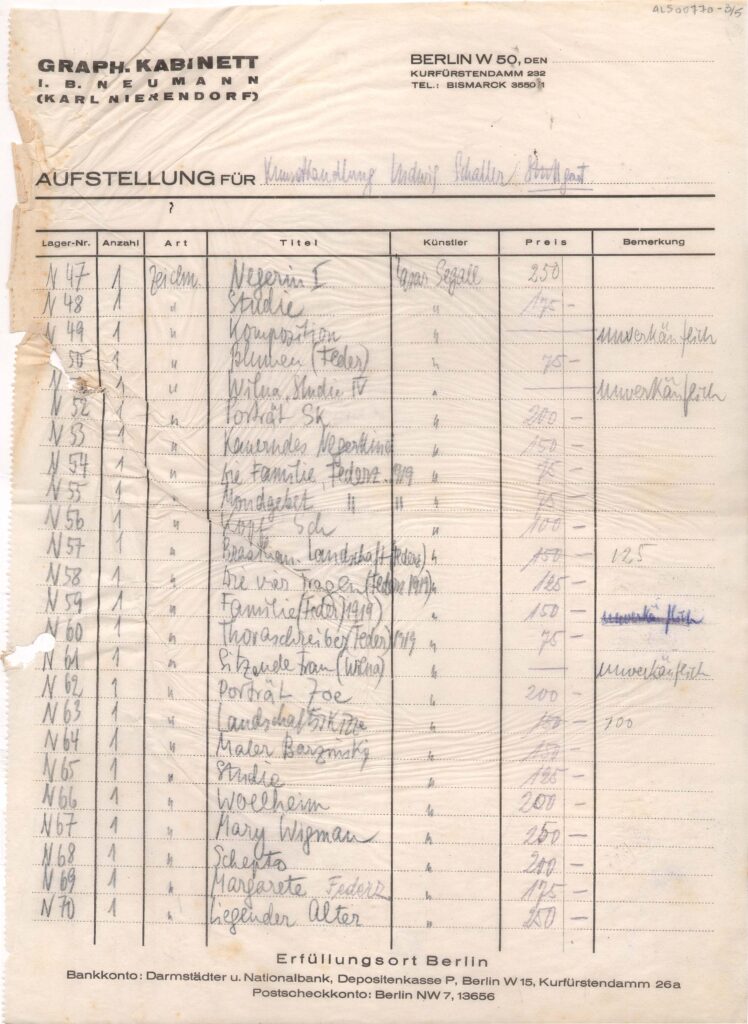 ALS 00770-5/5
GRAPH. KABINETT
I. B. NEUMANN
(KARL NIERENDORF)
BERLIN W 50, DEN
KURFÜRSTENDAMM 232
TEL.: BISMARCK 3550 1
AUFSTELLUNG FÜR Kunsthandlung Ludwig Schaller Stuttgart
?
Lager-Nr. Anzahl Art Titel Künstler Preis Bemerkung
N 47 1 Zeichn. Negerin I Lasar Segall 250
N 48 1 " Studie " 175 –
N 49 1 " Komposition " — unverkäuflich
50 1 " Blumen (Feder) " 75 –
N 1 " Wilna, Studie IV " — unverkäuflich
N 52 1 " Porträt Sk " 200 –
N 53 1 " Kauerndes Negerkind " 150 –
N 54 1 " Die Familie, Federz. 1919 " 75 –
N 55 1 " Mondgebet " " " 75 –
N 56 1 " Kopf Sch " 100 –
N 57 1 " Landschaft (Federz) " 150 – 125
N 58 1 " Die vier Fragen (Federz 1919) " 125 –
N 59 1 " Familie (Feder) 1919 " 150 – unverkäuflich
N 60 1 " Thoraschreiber (Feder) 1919 " 75 –
N 61 1 " Sitzende Frau (Wilna) " — unverkäuflich
N 62 1 " Porträt Zoe " 200 –
N 63 1 " " – 100
N 64 1 " Maler Barzinsky " 150 –
N 65 1 " Studie " 125 –
N 66 1 " Wollheim " 200 –
N 67 1 " Mary Wigman " 250 –
N 68 1 " " 200 –
N 69 1 " Margarete Federz " 175 –
N 70 1 " Liegender Alter " 250 –
Erfüllungsort Berlin
Bankkonto: Darmstädter u. Nationalbank, Depositenkasse P, Berlin W 15, Kurfürstendamm 26a
Postscheckkonto: Berlin NW 7, 13656